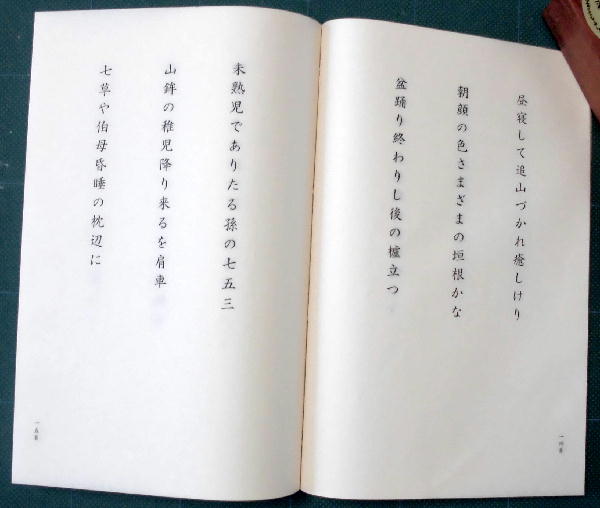 昼寝して追山づかれ癒しけり
朝顔の色さまざまの垣根かな
盆踊り終わりし後の櫓立つ
未熟児でありたる孫の七五三
山鉾の稚児降り来るを肩車
七草や伯母昏睡の枕辺に